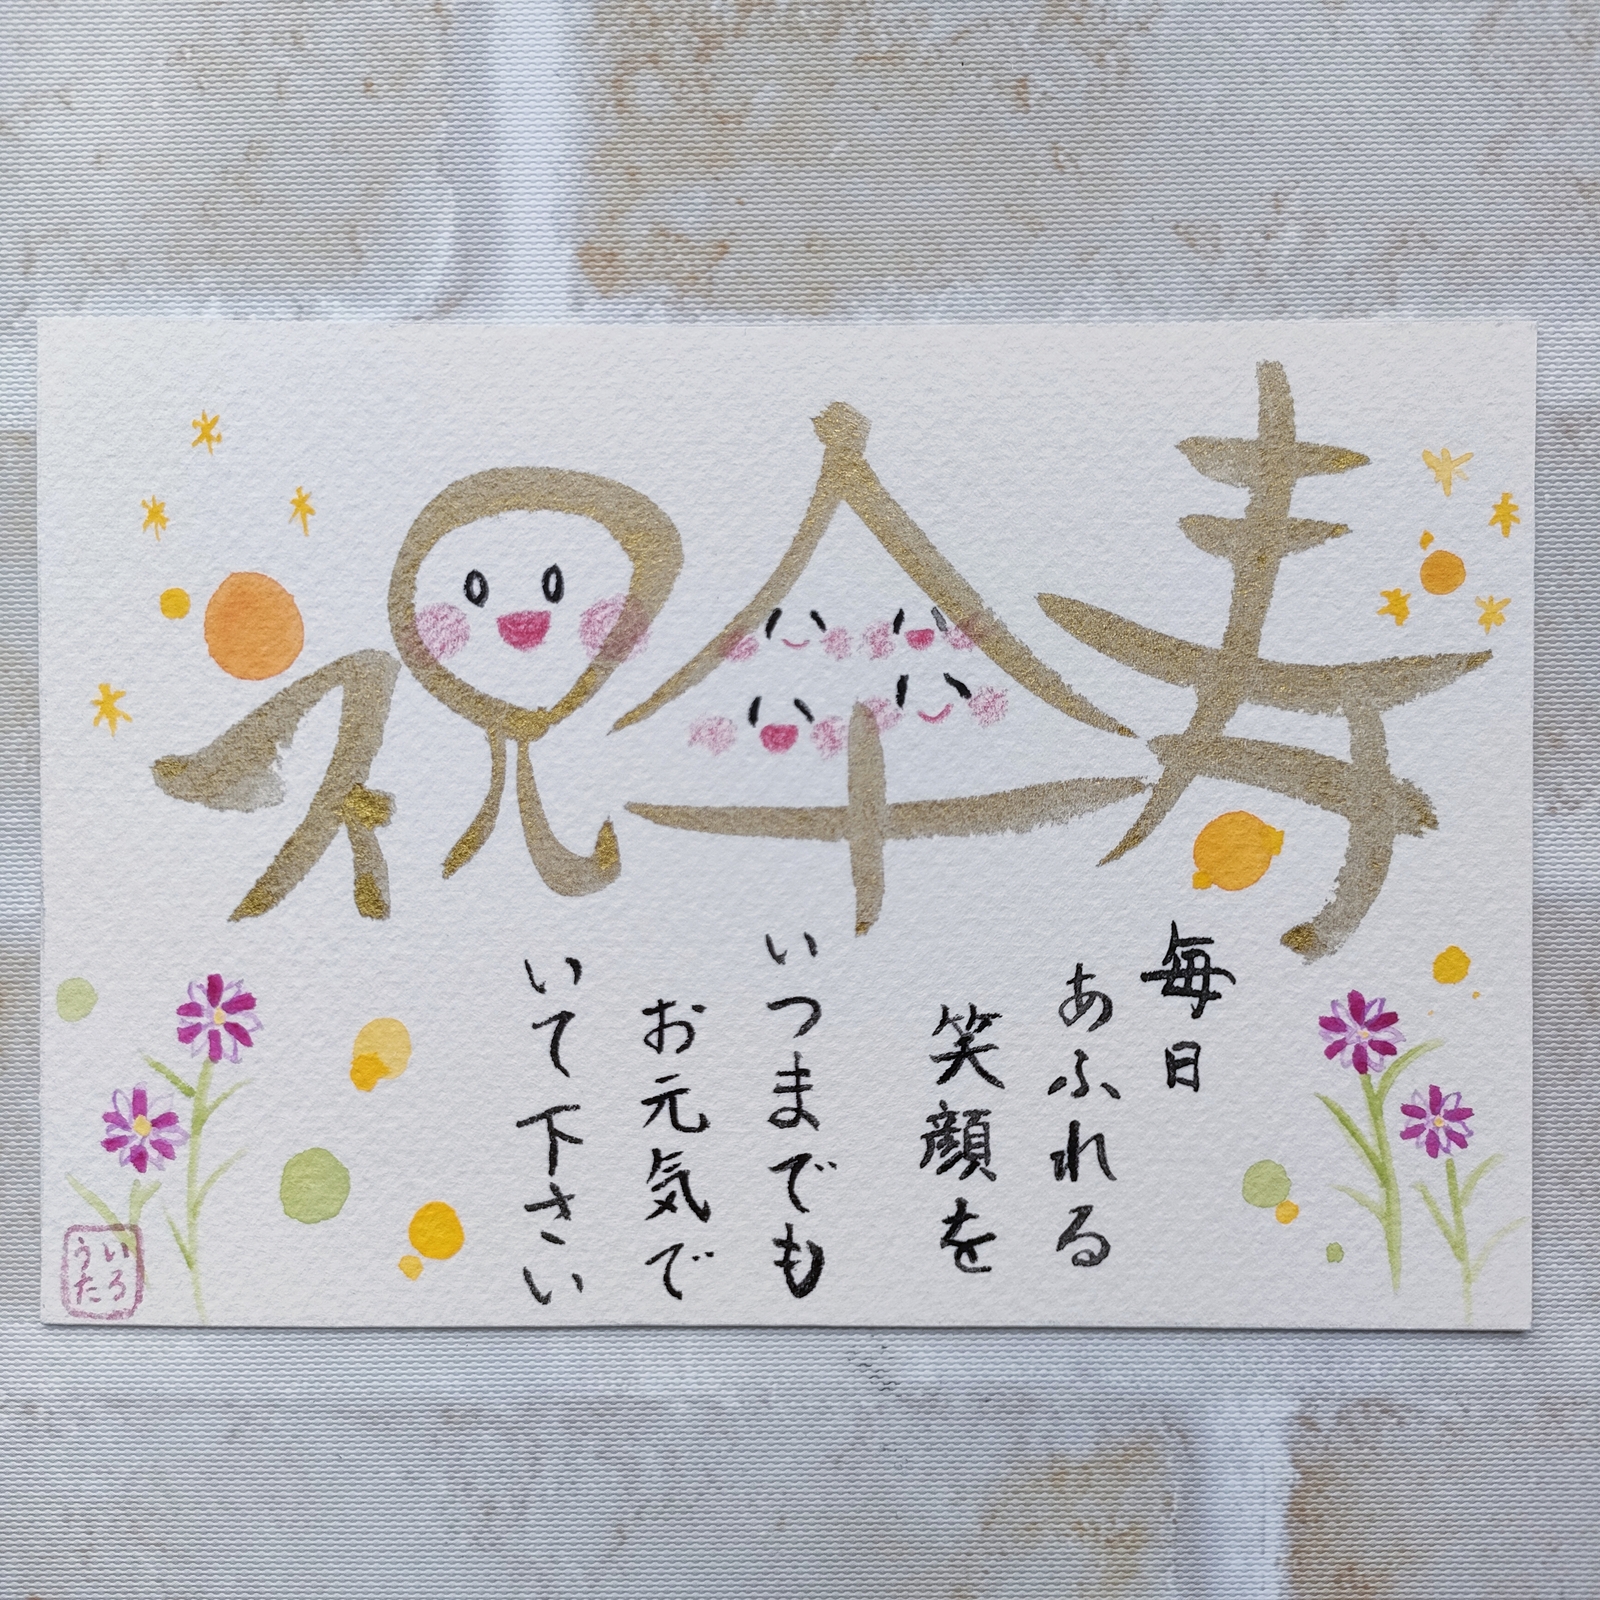 祝傘寿
毎日
あふれる
笑顔を
いつまでも
お元気で
いて下さい
いろ
うた